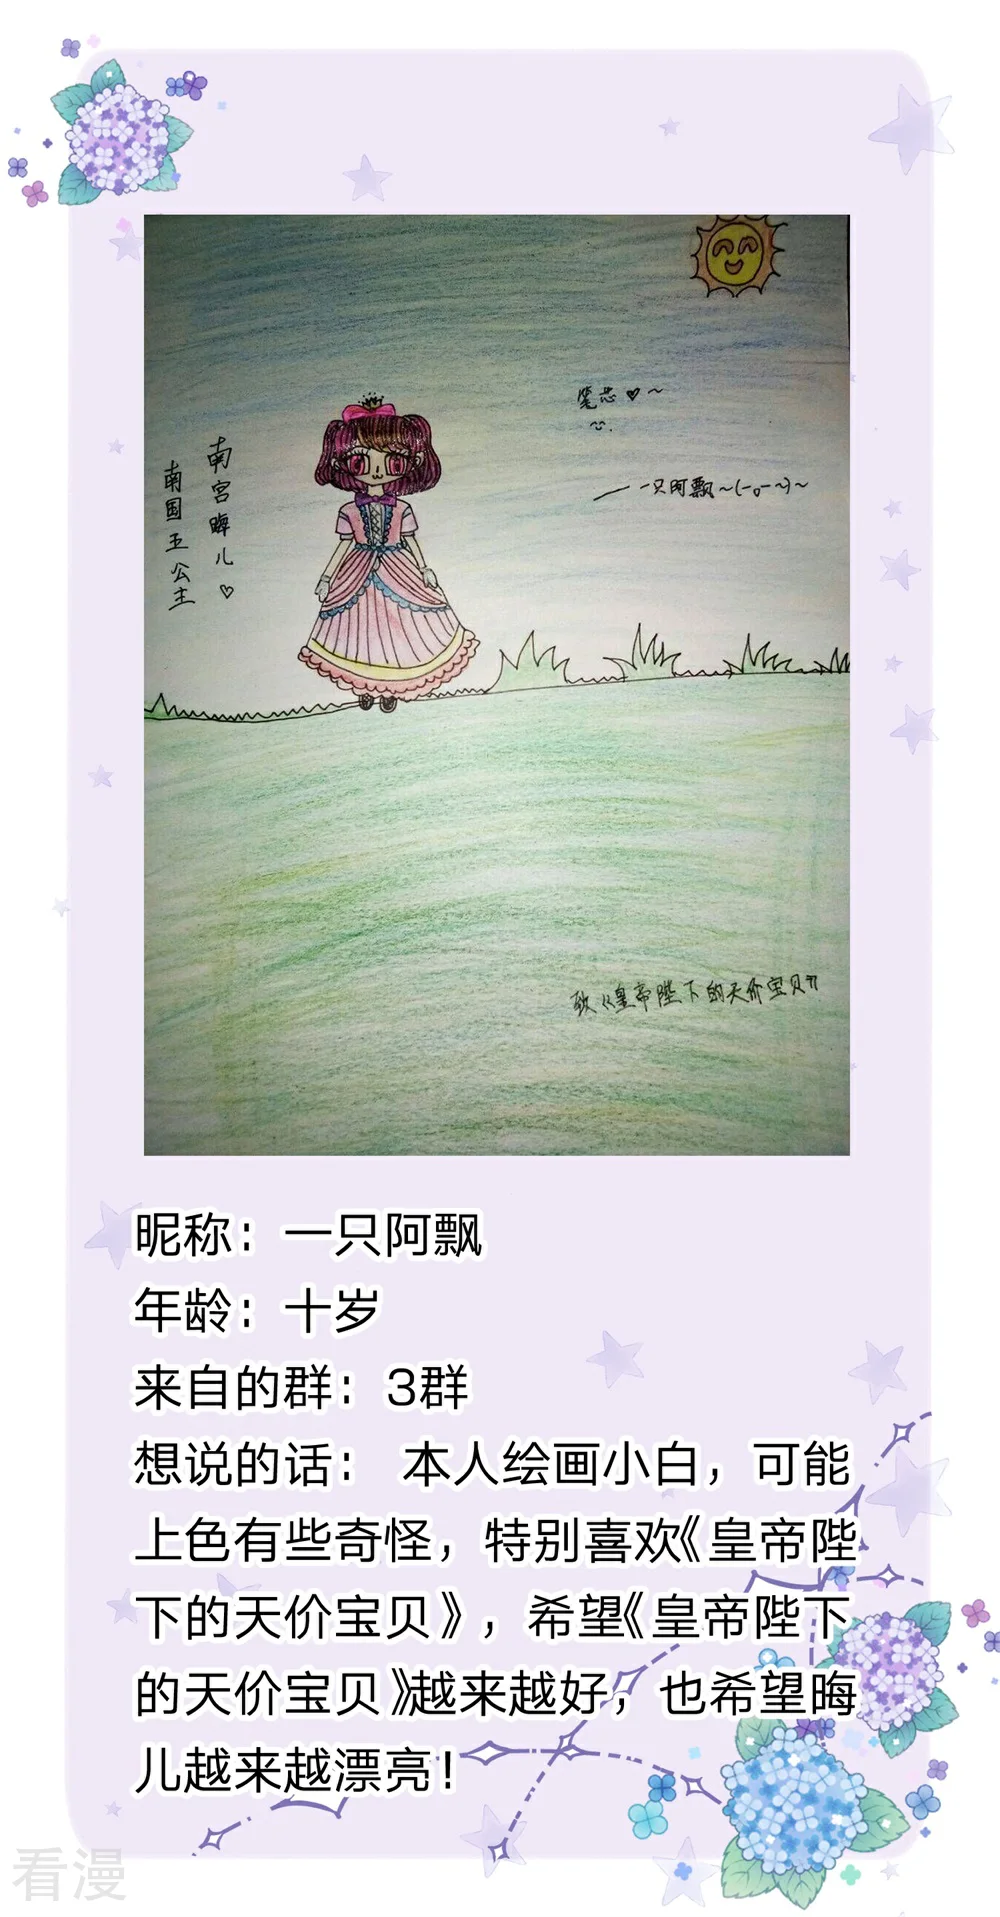 南宫晦儿♡
南国玉公主
笔芯♡～
一只阿飘～(-。-~)～
致《皇帝陛下的天价宝贝》
昵称：一只阿飘
年龄：十岁
来自的群：3群
想说的话： 本人绘画小白，可能
上色有些奇怪，特别喜欢《皇帝陛
下的天价宝贝》，希望《皇帝陛下
的天价宝贝》越来越好，也希望晦
儿越来越漂亮！
看漫